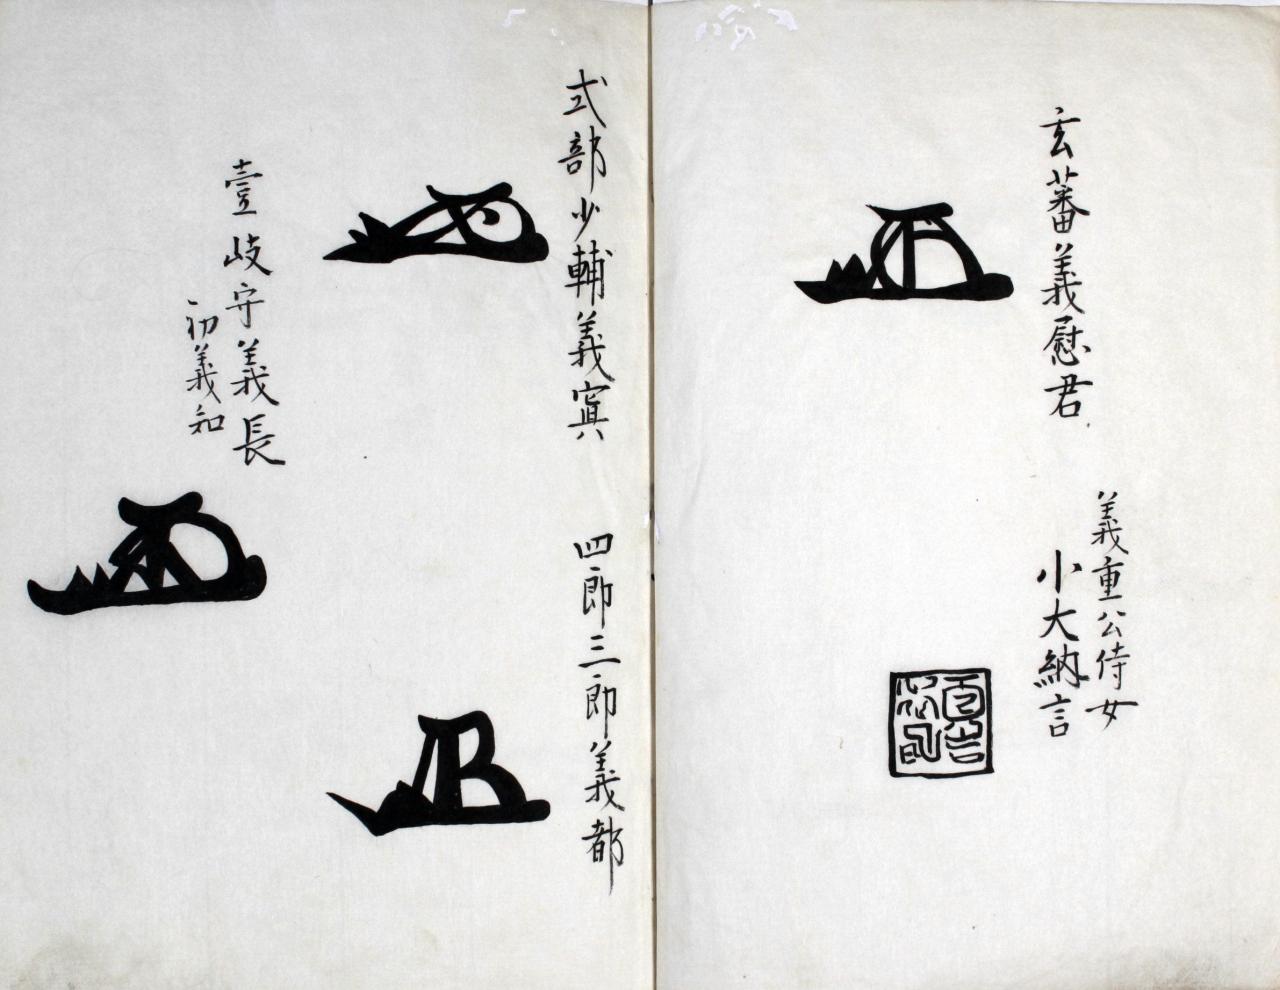 玄蕃義慰君
義重公侍女
小大納言
式部少輔義寘
四郎三郎義都
壹岐守義長
初義知